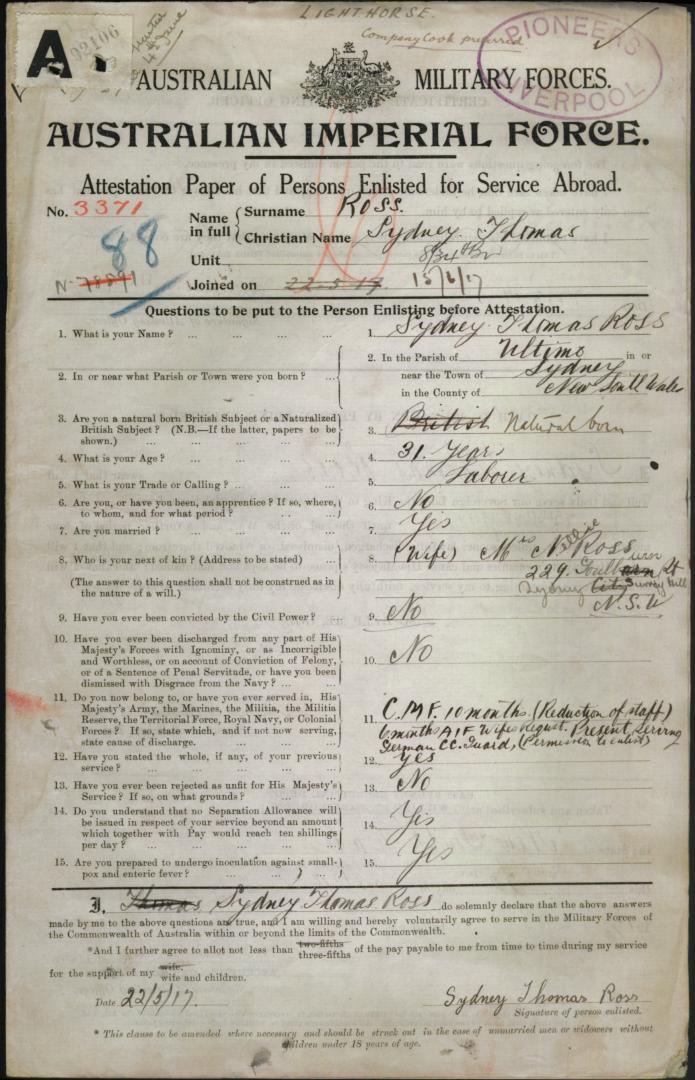 LIGHTHORSE.
Company Cook preferred
A
92106
PIONEERS
LIVERPOOL.
AUSTRALIAN MILITARY FORCES.
AUSTRALIAN IMPERIAL FORCE.
Attestation Paper of Persons Enlisted for Service Abroad.
No. 3371
88
N-78591
Name in full
Surname Ross.
Christian Name Sydney Thomas
Unit
Joined on 22-5-17 15/6/17
Questions to be put to the Person Enlisting before Attestation.
1. What is your Name? ... ... ... ...
1. Sydney Thomas Ross
2. In or near what Parish or Town were you born? ...
2. In the Parish of Ultimo in or
near the Town of Sydney
in the County of New South Wales
3. Are you a natural born British Subject or a Naturalized
British Subject? (N.B.—If the latter, papers to be
shown.) ... ... ... ...
3. British Natural born
4. What is your Age? ... ... ... ...
4. 31 Years
5. What is your Trade or Calling? ... ... ...
5. Laborer
6. Are you, or have you been, an apprentice? If so, where,
to whom, and for what period? ... ... ...
6. No
7. Are you married? ... ... ... ...
7. Yes
8. Who is your next of kin? (Address to be stated) ...
(The answer to this question shall not be construed as in
the nature of a will.)
8. (Wife) Mrs Nellie Ross
229. Goulburn St
Sydney City Surrey Hill
N.S.W
9. Have you ever been convicted by the Civil Power? ...
9. No
10. Have you ever been discharged from any part of His
Majesty's Forces with Ignominy, or as Incorrigible
and Worthless, or on account of Conviction of Felony,
or of a Sentence of Penal Servitude, or have you been
dismissed with Disgrace from the Navy? ... ...
10. No
11. Do you now belong to, or have you ever served in, His
Majesty's Army, the Marines, the Militia, the Militia
Reserve, the Territorial Force, Royal Navy, or Colonial
Forces? If so, state which, and if not now serving,
state cause of discharge. ... ... ...
11. C.M.F. 10 months. (Reduction of staff)
6 months AIF Wifes Request. Present Serving
German C.C. Guard, (Permission to enlist)
12. Have you stated the whole, if any, of your previous
service? ... ... ... ...
12. Yes
13. Have you ever been rejected as unfit for His Majesty's
Service? If so, on what grounds? ... ...
13. No
14. Do you understand that no Separation Allowance will
be issued in respect of your service beyond an amount
which together with Pay would reach ten shillings
per day? ... ... ... ...
14. Yes
15. Are you prepared to undergo inoculation against small-
pox and enteric fever? ... ... ... ...
15. Yes
I, Thomas Sydney Thomas Ross do solemnly declare that the above answers
made by me to the above questions are true, and I am willing and hereby voluntarily agree to serve in the Military Forces of
the Commonwealth of Australia within or beyond the limits of the Commonwealth.
*And I further agree to allot not less than two-fifths three-fifths of the pay payable to me from time to time during my service
for the support of my wife. wife and children.
Date 22/5/17.
Sydney Thomas Ross
Signature of person enlisted.
* This clause to be amended where necessary and should be struck out in the case of unmarried men or widowers without
children under 18 years of age.